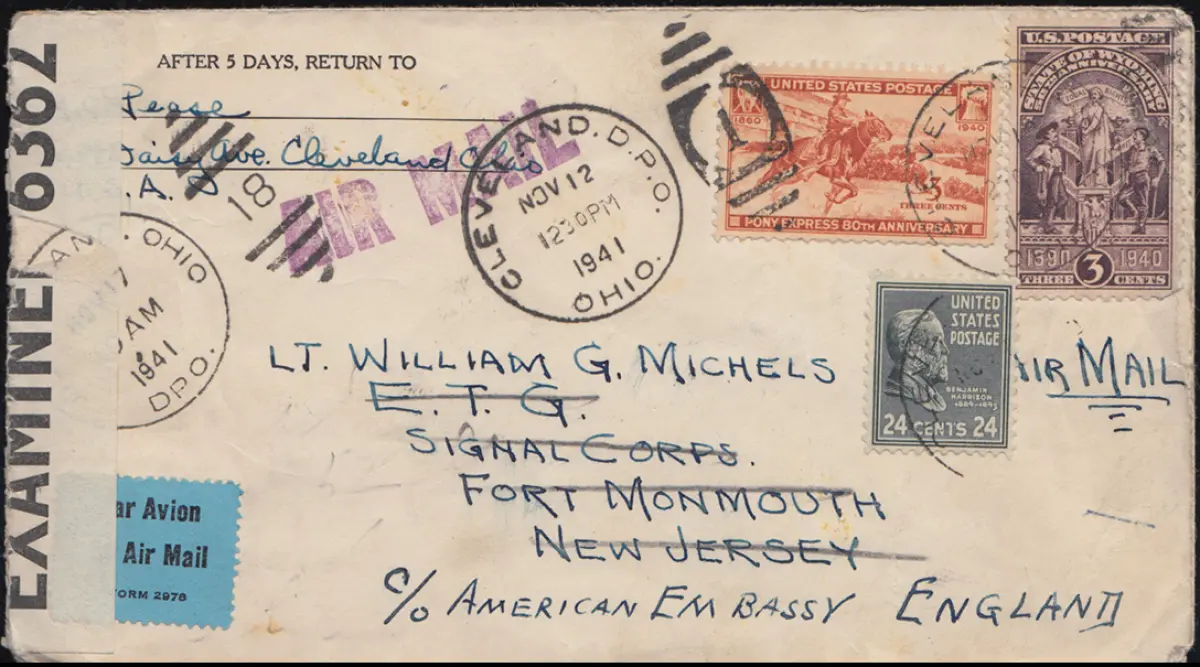 EXAMINER 6362
AFTER 5 DAYS, RETURN TO
Pease
Daisy Ave. Cleveland Ohio
AIR MAIL
18
CLEVELAND. D.P.O.
NOV 12
1230 PM
1941
OHIO.
OHIO
AM
1941
DPO.
1
UNITED STATES POSTAGE
1860
1940
3
THREE CENTS
PONY EXPRESS 80TH ANNIVERSARY
U.S. POSTAGE
STATE OF WYOMING
50TH ANNIVERSARY
1890 1940
THREE 3 CENTS
UNITED
STATES
POSTAGE
BENJAMIN
HARRISON
1889-1893
24 CENTS 24
LT. WILLIAM G. MICHELS
AIR MAIL
E. T. G.
SIGNAL CORPS.
FORT MONMOUTH
NEW JERSEY
c/o AMERICAN EMBASSY ENGLAND
ar Avion
Air Mail
ORM 2978